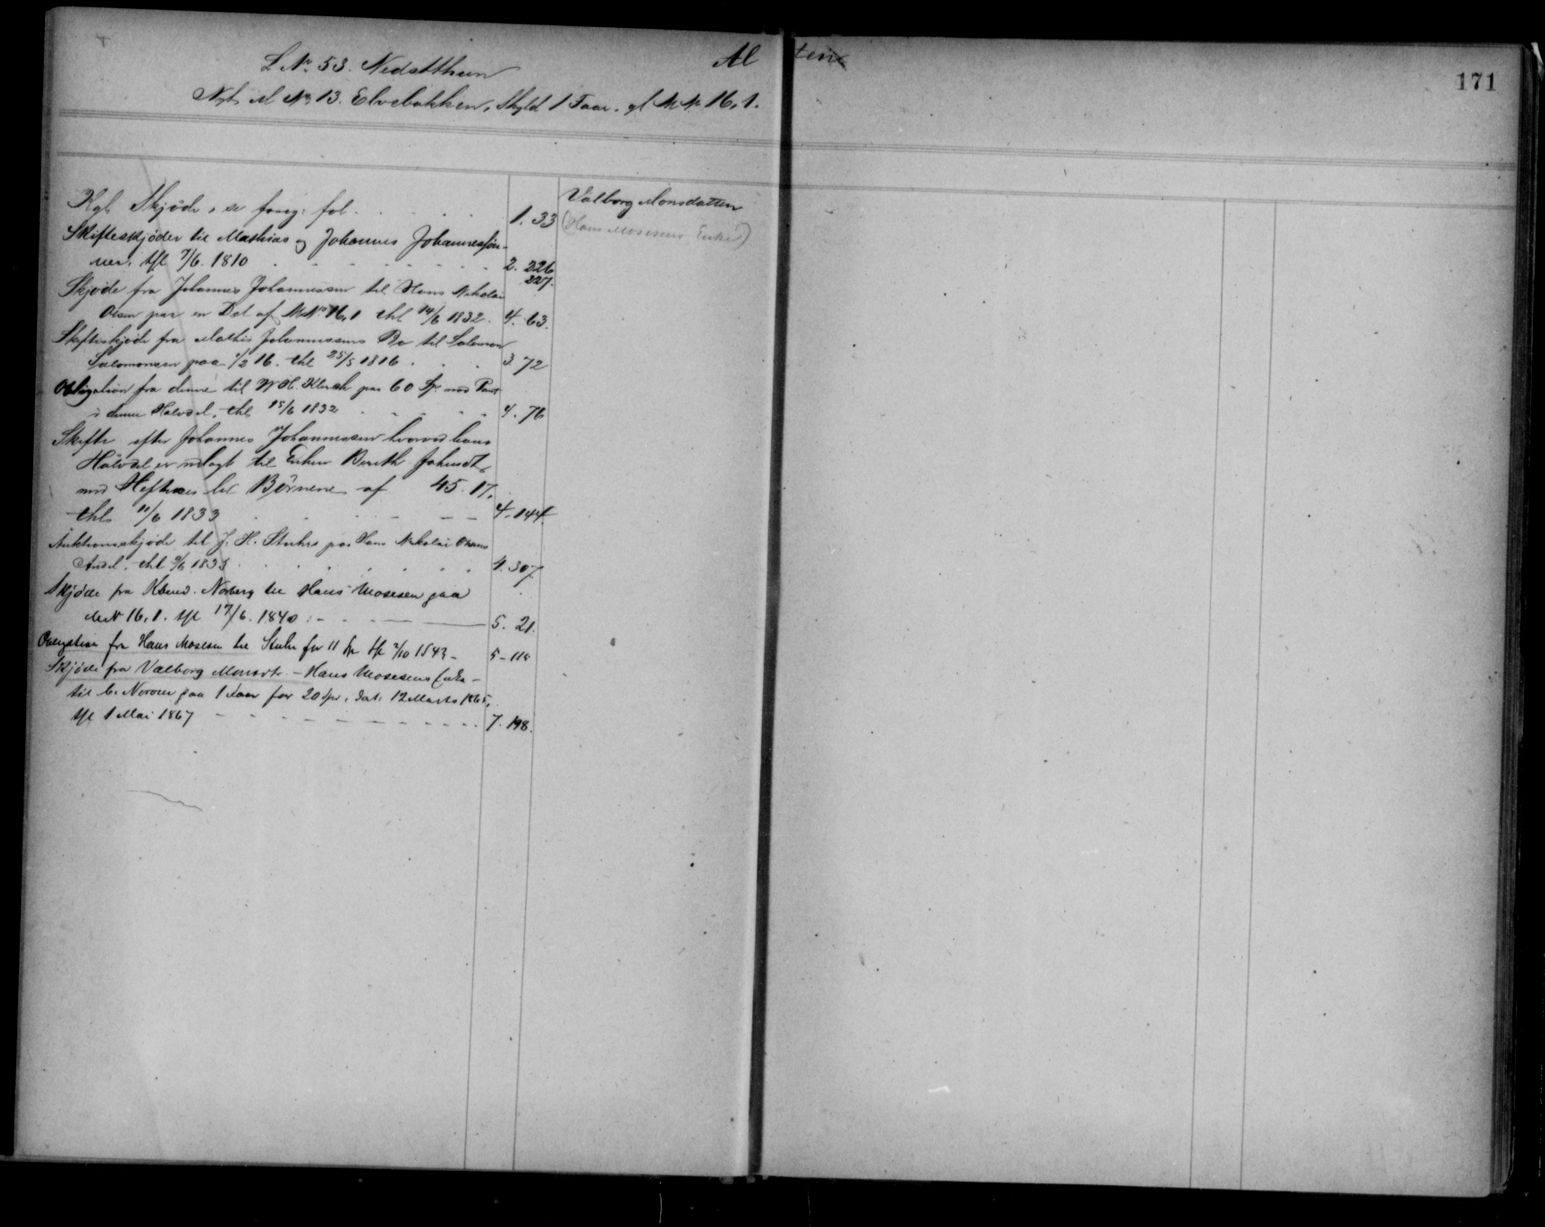 L. No. 53. Nedatthun
Al ten
171
Nyt M. No. 13. Elvebakken, Skyld 1 Faar. gl. M. No. 16, 1.
Kgl. Skjøde, se forrig. fol. . . . . 1. 33
Valborg Monsdatter
(Hans Mosesens Enke)
Skifteskjøder til Mathias og Johannes Johannessøn-
ner, tgl. 7/6. 1810 . . . . . . . 2. 226
227.
Skjøde fra Johannes Johannessen til Hans Nikolai
Olsen paa en Del af M. No. 16, 1 thl. 14/6 1832. 4. 63.
Skifteskjøde fra Mathis Johannessens Bo til Salomon
Salomonsen paa 1/2 16. thl 25/5 1816 . . . 3. 72
Obligation fra denne til W. H. Klerck paa 60 Sp. med Pant
i denne Halvdel, thl. 15/6 1832 . . . . . 4. 76
Skifte efter Johannes Johannessen hvorved hans
Halvdel er udlagt til Enken Berith Johnsdtr
med Heftelse for Børnene af 45. 17.
thl. 11/6 1833 . . . . . – – 4. 144.
Auktionsskjøde til J. H. Stuhr paa Hans Nikolai Olsens
Andel. thl. 9/6 1835 . . . . . . . 4. 307.
Skjøde fra Kbmd. Norberg til Hans Mosesen paa
M. No 16, 1. tgl. 17/6. 1840. – – – 5. 21.
Obligation fra Hans Mosesen til Stuhr for 11 Spr. tgl. 2/10 1843 – 5 – 118
Skjøde fra Valborg Monsdt. – Hans Mosesens Enke –
til C. Norum paa 1 Faar for 20 Spr., dat. 12 Marts 1865,
tgl. 1 Mai 1867 – – – – – – – 7. 198.